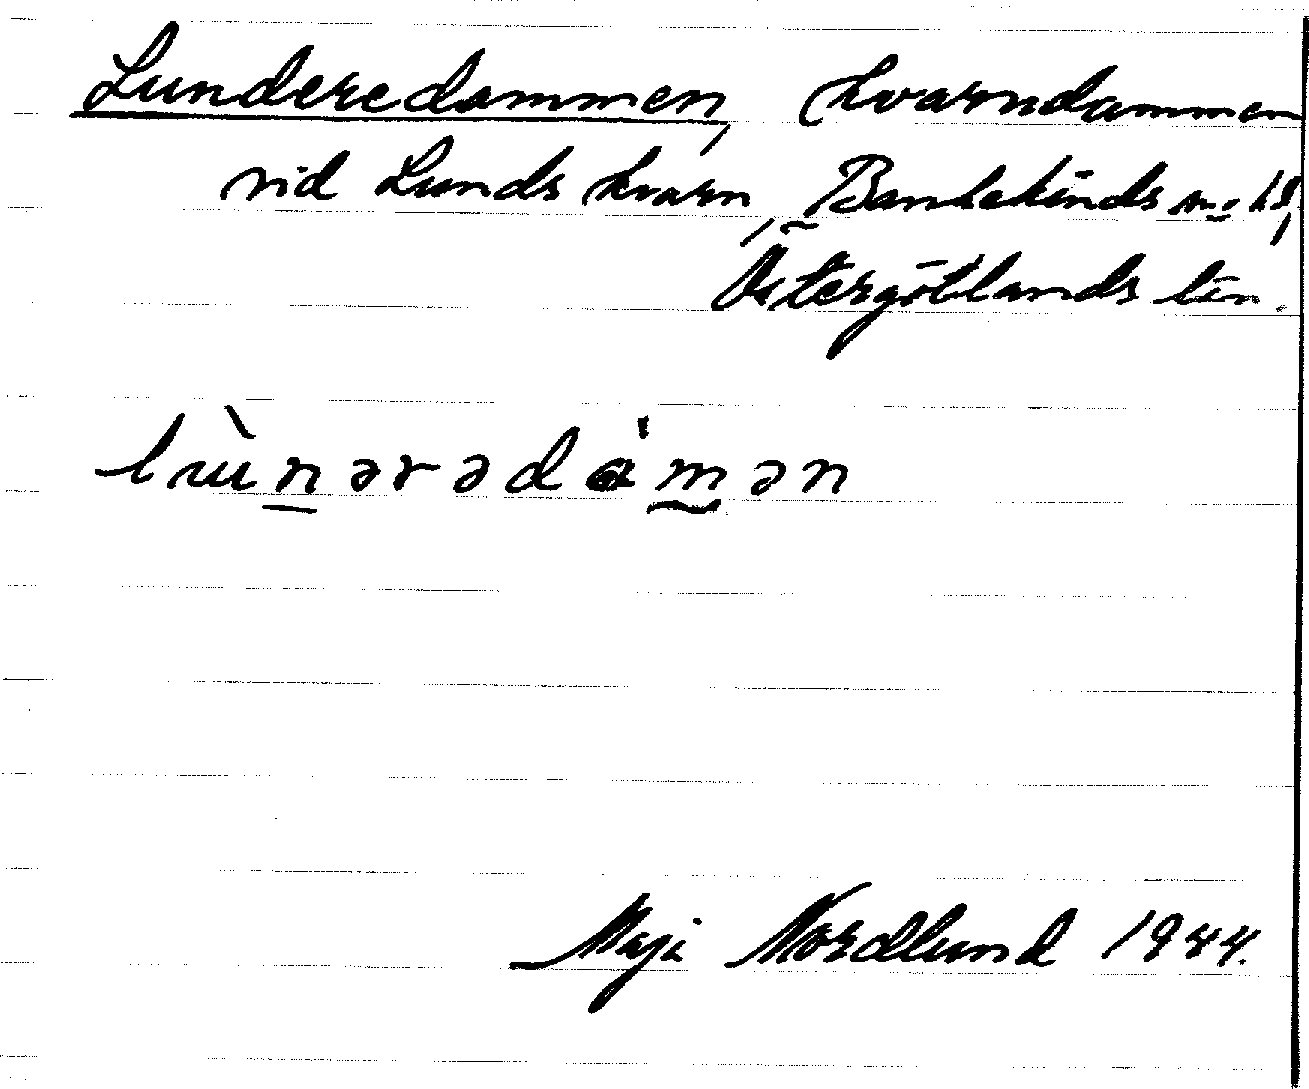 Lunderedammen, kvarndammen
vid Lunds kvarn, Bankekinds sn o 18,
Östergötlands län.
lùnərədàmən
Maji Nordlund 1944.